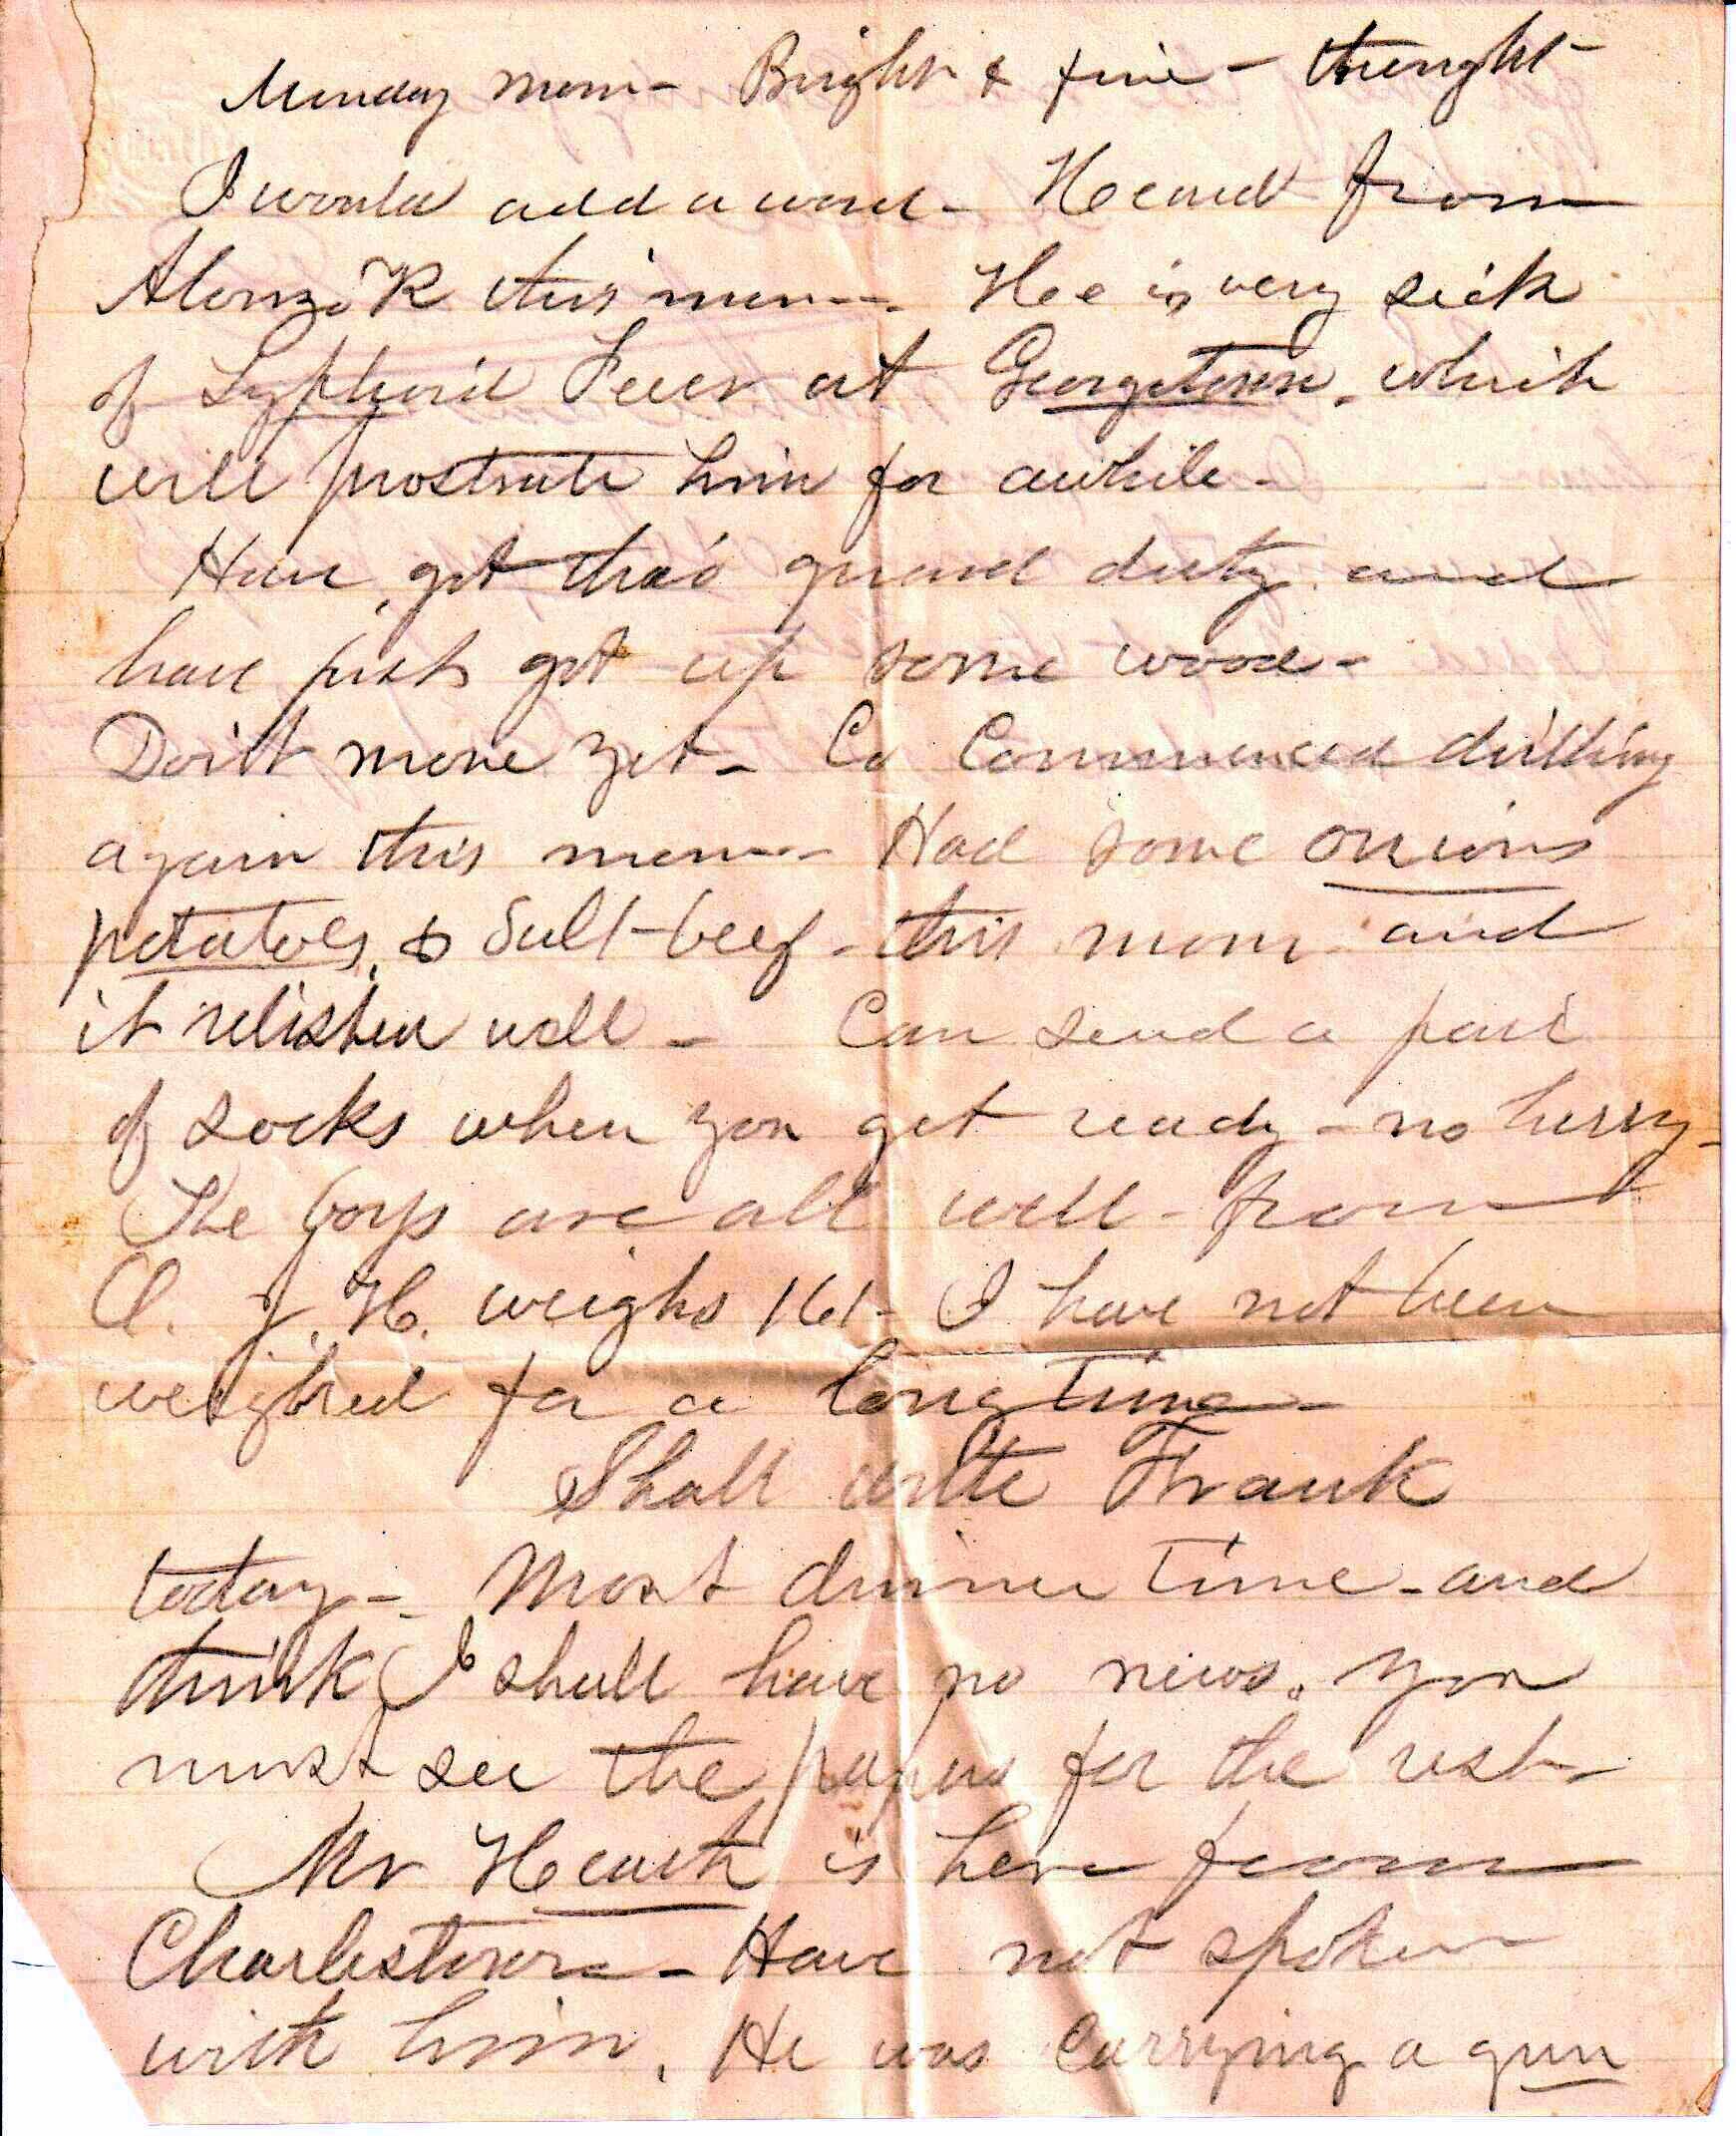 Monday morn - Bright & fine - thought
I would add a word - Heard from
Alonzo K this morn - He is very sick
of Typhoid Fever at Georgetown, which
will prostrate him for awhile -
Have got thro guard duty and
have just got up some wood -
Don't move yet - Co Commenced drilling
again this morn - Had some onions
potatoes, & Salt-beef - this morn and
it relished well - Can send a pair
of socks when you get ready - no hurry -
The boys are all well - from
C. J. H. weighs 161 - I have not been
weighed for a long time -
Shall write Frank
today - Most dinner time - and
think I shall have no news. You
must see the papers for the rest -
Mr Heath is here from
Charlestown - Have not spoken
with him. He was carrying a gun